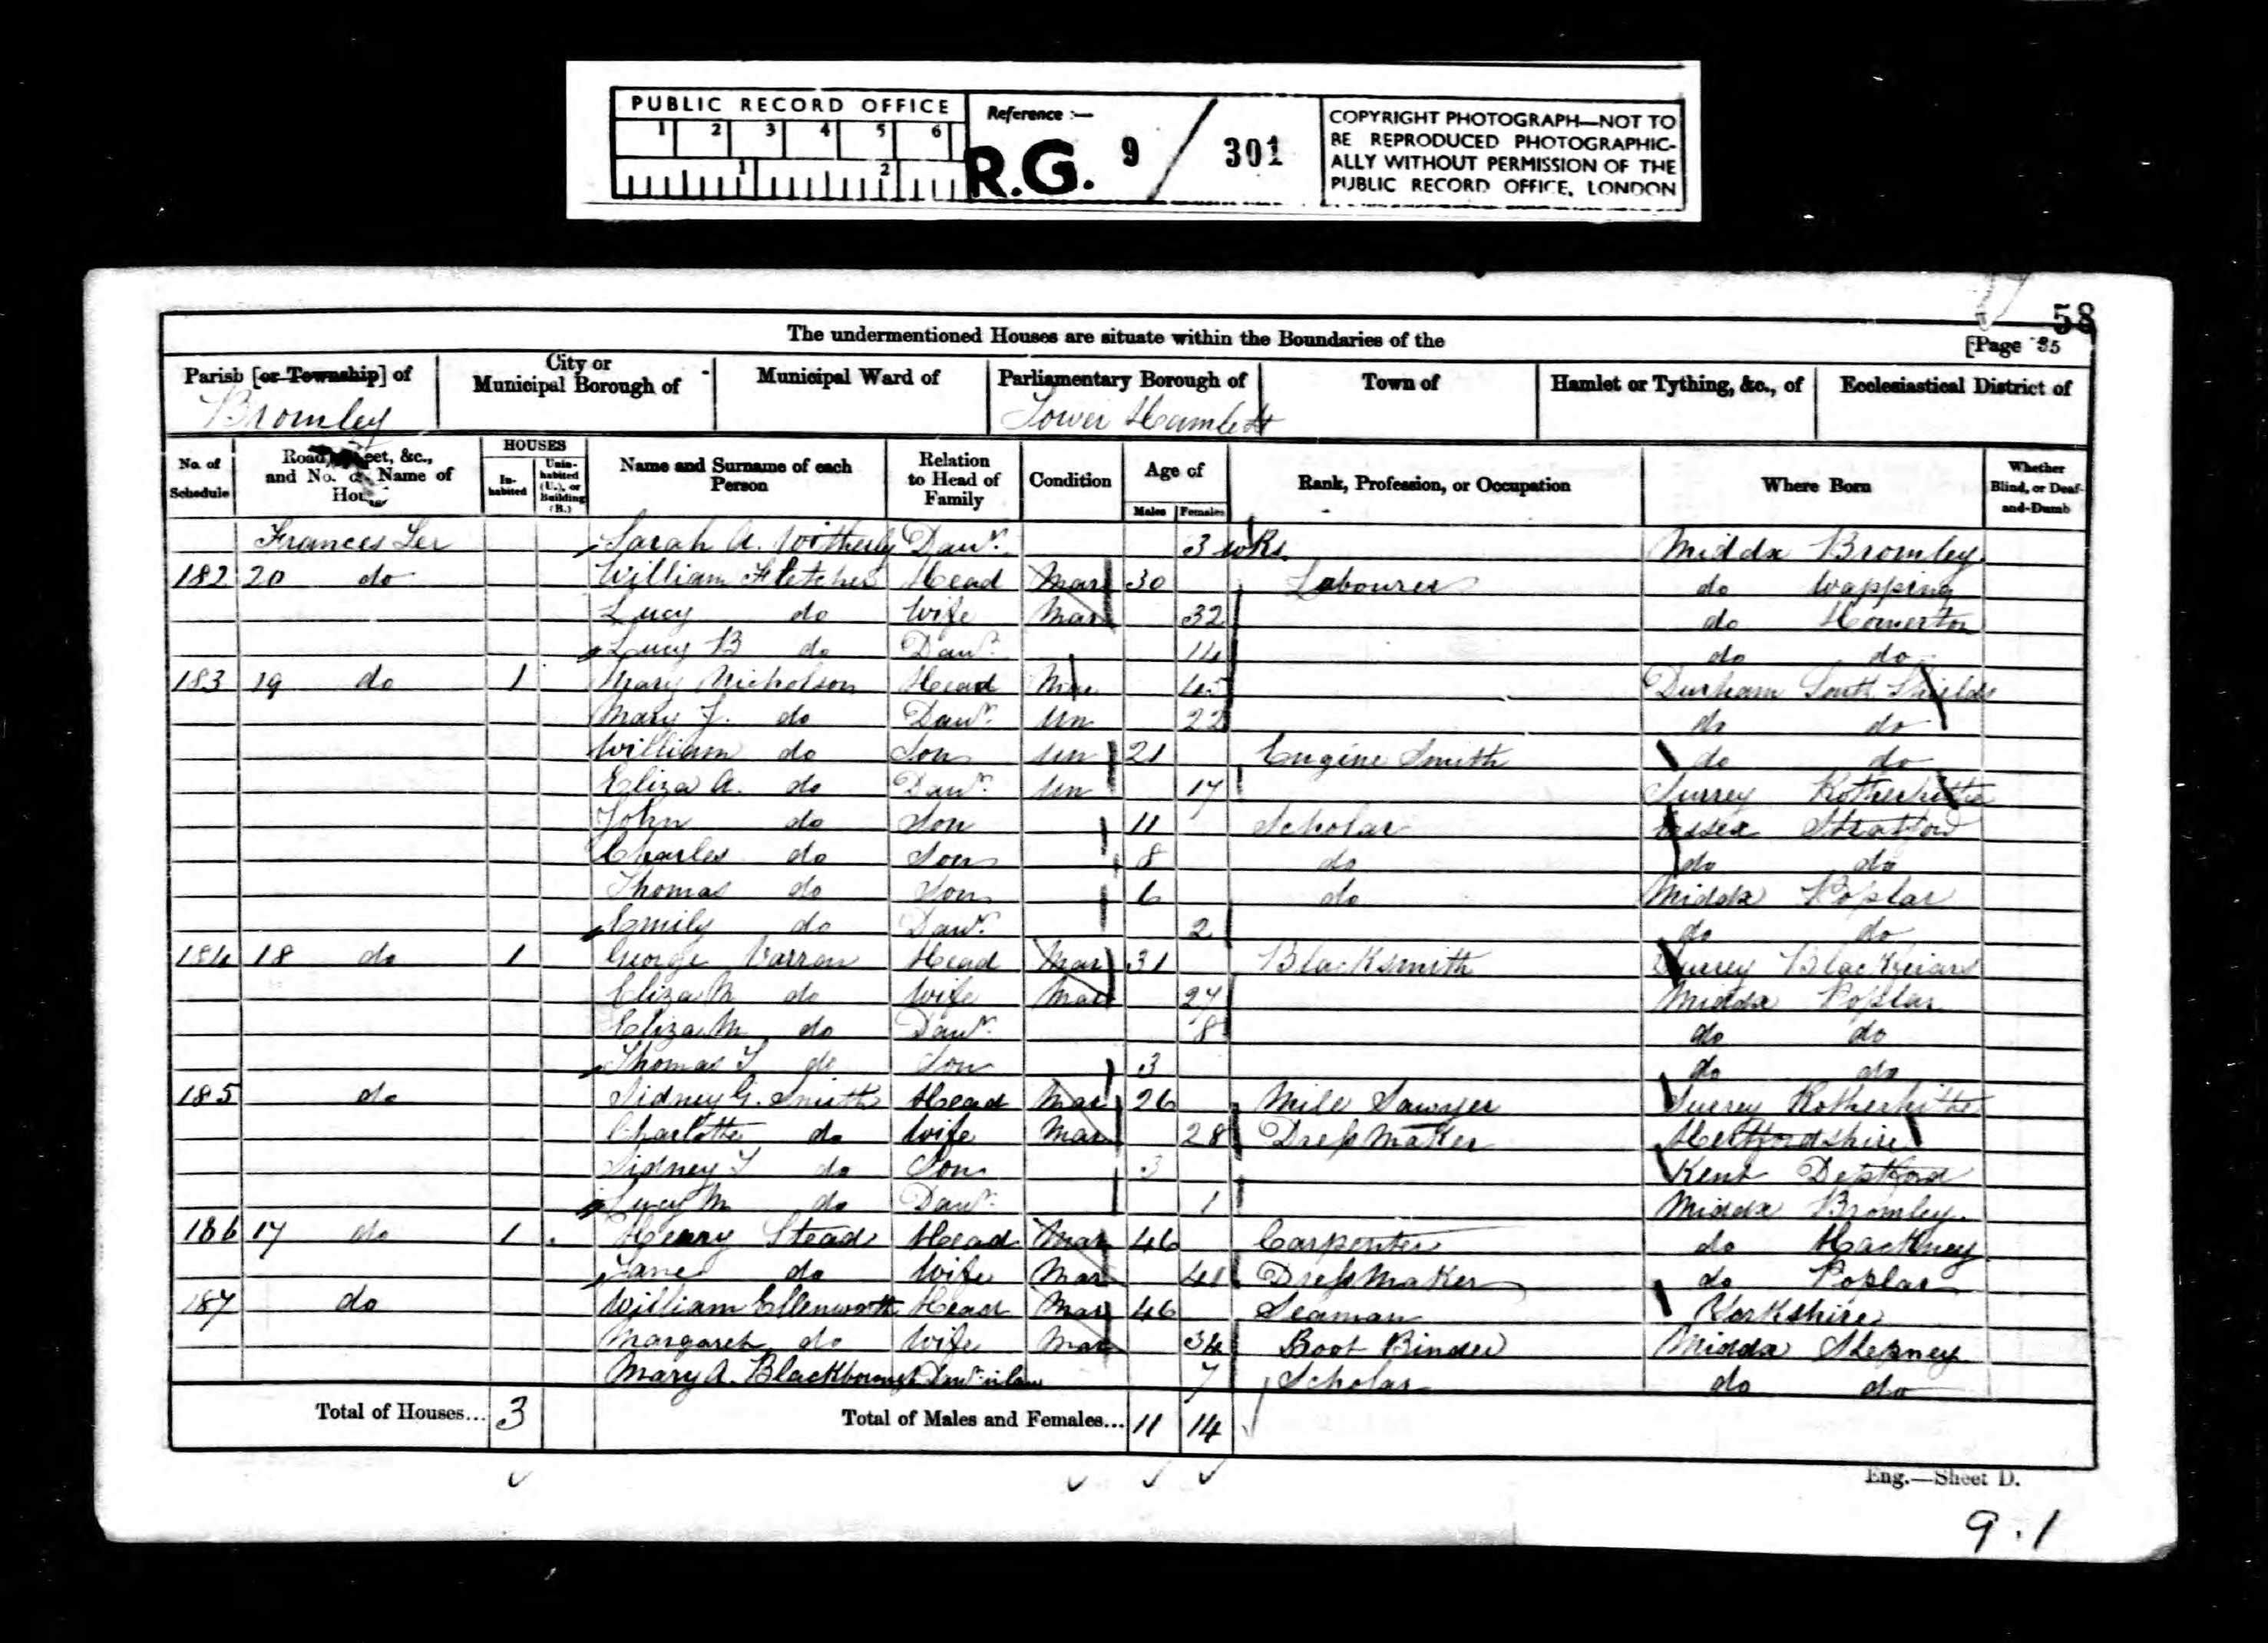 PUBLIC RECORD OFFICE
1 2 3 4 5 6
1 2
Reference :—
R.G. 9 / 301
COPYRIGHT PHOTOGRAPH—NOT TO
BE REPRODUCED PHOTOGRAPHIC-
ALLY WITHOUT PERMISSION OF THE
PUBLIC RECORD OFFICE, LONDON
58
The undermentioned Houses are situate within the Boundaries of the
[Page 35
Parish [or Township] of
City or Municipal Borough of
Municipal Ward of
Parliamentary Borough of
Town of
Hamlet or Tything, &c., of
Ecclesiastical District of
Bromley Tower Hamlets
No. of Schedule
Road, Street, &c., and No. or Name of House
HOUSES
In-habited
Unin-habited (U.), or Building (B.)
Name and Surname of each Person
Relation to Head of Family
Condition
Age of
Males Females
Rank, Profession, or Occupation
Where Born
Whether Blind, or Deaf-and-Dumb
Frances Ter Sarah A. Witherly Daur. 3 wks. Middx Bromley
182 20 do William Fletcher Head Mar 30 Labourer do Wapping
Lucy do Wife Mar 32 do Homerton
Lucy B do Daur. 14 do do
183 19 do 1 Mary Nicholson Head Mar 45 Durham South Shields
Mary J. do Daur. Un 22 do do
William do Son Un 21 Engine Smith do do
Eliza A. do Daur. Un 17 Surrey Rotherhithe
John do Son 11 Scholar Essex Stratford
Charles do Son 8 do do do
Thomas do Son 6 do Middx Poplar
Emily do Daur. 2 do do
184 18 do 1 George Varran Head Mar 31 Blacksmith Surrey Blackfriars
Eliza M do Wife Mar 27 Middx Poplar
Eliza M do Daur. 8 do do
Thomas do Son 3 do do
185 do Sidney G. Smith Head Mar 26 Mill Sawyer Surrey Rotherhithe
Charlotte do Wife Mar 28 Dress Maker Hertfordshire
Sidney do Son 3 Kent Deptford
Lucy M do Daur. 1 Middx Bromley
186 17 do 1 Henry Stead Head Mar 46 Carpenter do Hackney
Jane do Wife Mar 41 Dress Maker do Poplar
187 do William Ellenworth Head Mar 46 Seaman Yorkshire
Margaret do Wife Mar 34 Boot Binder Middx Stepney
Mary A. Blackborough Daur in law 7 Scholar do do
Total of Houses... 3 Total of Males and Females... 11 14
Eng.—Sheet D.
9.1